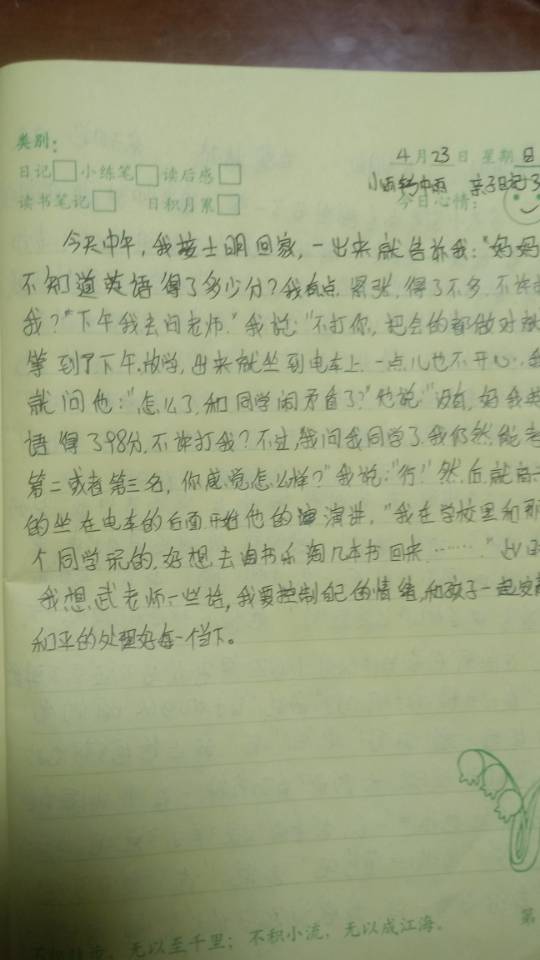 类别:
4月23日 星期日
日记 小练笔 读后感
小雨转中雨 亲子日记
读书笔记 日积月累 今日心情:
今天中午,我接士明回家,一出来就告诉我:“妈妈
不知道英语得了多少分?我有点紧张,得了不多,不许打
我?”下午我去问老师.”我说:“不打你,把会的都做对就
等到了下午.放学,出来就坐到电车上,一点儿也不开心,我
就问他:“怎么了,和同学闹矛盾了?”他说:“没有,妈我英
语得了98分,不许打我?不过,我问我同学了,我仍然能考
第二或者第三名,你感觉怎么样?”我说:“行!”然后就高兴
的坐在电车的后面开始他的演讲,“我在学校里和那
个同学玩的,好想去由书乐淘几本书回来……”
我想武老师一些话,我要控制自己的情绪,和孩子一起
和平的处理好每一个当下。
无以至千里;不积小流,无以成江海。
第